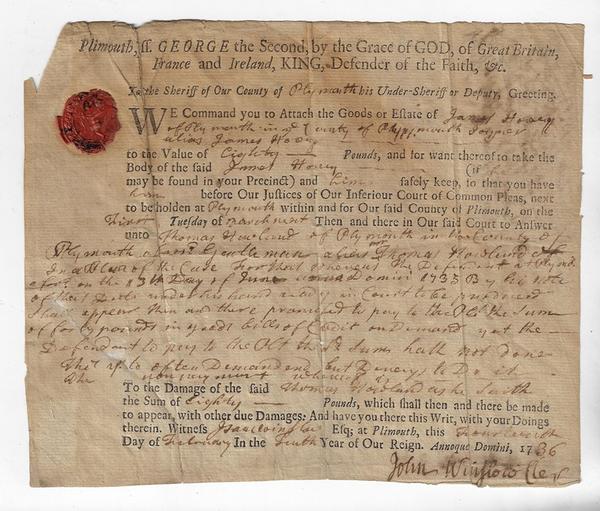 Plimouth, ss. GEORGE the Second, by the Grace of GOD, of Great Britain,
France and Ireland, KING, Defender of the Faith, &c.
To the Sheriff of Our County of Plymouth his Under-Sheriff or Deputy, Greeting.
WE Command you to Attach the Goods or Estate of James Hovey
of Plymouth in County of Plymouth
alias James Hovey
to the Value of Eighty Pounds, and for want thereof to take the
Body of the said James Hovey (if he
may be found in your Precinct) and him safely keep, so that you have
him before Our Justices of Our Inferiour Court of Common Pleas, next
to be holden at Plymouth within and for Our said County of Plimouth, on the
first Tuesday of march next Then and there in Our said Court to Answer
unto Thomas Howland of Plymouth in County of
Plymouth Gentleman alias Thomas Howland
In a Plea of the Case For that the Defendant at Plymo
on the Day of June Domini 1735 By his note
of that Date under his hand ready in Court to be produced
Shall appear then and there promised to pay to the Plt the Sum
of forty pounds in good bills of Credit on Demand yet the
Defendant to pay to the Plt the Sd Sum hath not done
tho often Demanded but Denys to Do it
To the Damage of the said Thomas Howland as he Saith
the Sum of Eighty Pounds, which shall then and there be made
to appear, with other due Damages: And have you there this Writ, with your Doings
therein. Witness Isaac Winslow Esq; at Plimouth, this Fourteenth
Day of February In the Tenth Year of Our Reign. Annoque Domini, 1736
John Winslow Cler